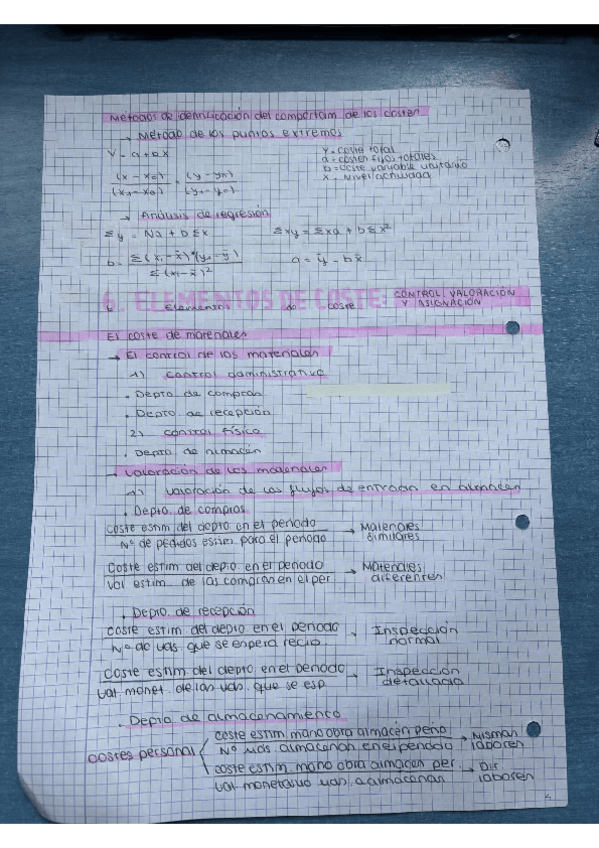 Métodos de identificación del comportam. de los costes
→ Método de los puntos extremos
Y = a + bX
Y = coste total
a = costes fijos totales
b = coste variable unitario
X = Nivel actividad
(X - X0) / (X1 - X0) = (Y - Y0) / (Y1 - Y0)
→ Análisis de regresión
Σy = Na + bΣx
Σxy = Σxa + bΣx²
b = Σ(xi - x̄)*(yi - ȳ) / Σ(xi - x̄)²
a = ȳ - bx̄
6. ELEMENTOS DE COSTE: CONTROL, VALORACIÓN
Y ASIGNACIÓN
El coste de materiales
→ El control de los materiales
1) Control administrativo
• Depto de compras
• Depto. de recepción
2) Control físico
• Depto. de almacén
→ Valoración de los materiales
1) Valoración de los flujos de entrada en almacén
• Depto de compras
Coste estim del depto en el periodo / Nº de pedidos estim. para el periodo → Materiales similares
Coste estim del depto. en el periodo / Val estim. de las compras en el per → Materiales diferentes
• Depto. de recepción
Coste estim. del depto en el periodo / Nº de uds. que se espera recib. → Inspección normal
Coste estim del depto. en el periodo / Val monet. de las uds. que se esp. → Inspección detallada
• Depto de almacenamiento
Costes personal
coste estim mano obra almacén perio / Nº uds. almacenan en el periodo → Mismas labores
coste estim mano obra almacén per. / Val monetario uds. almacenan → Dif labores